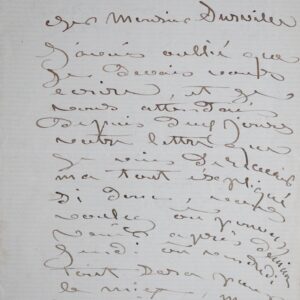 cher Monsieur Durville
J'avais oublié que
je devais vous
écrire, et je
vous attendais
depuis deux jours
votre lettre que
je viens de recevoir
m'a tout expliqué
si donc, vous
voulez ou pouvez
venir après demain
lundi ou vendredi
tout sera pour
le mieux